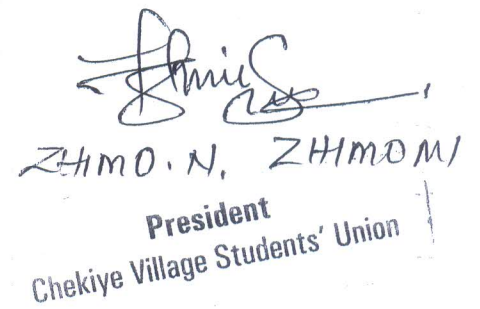 ZHIMO. N. ZHIMOMI
President
Chekiye Village Students' Union